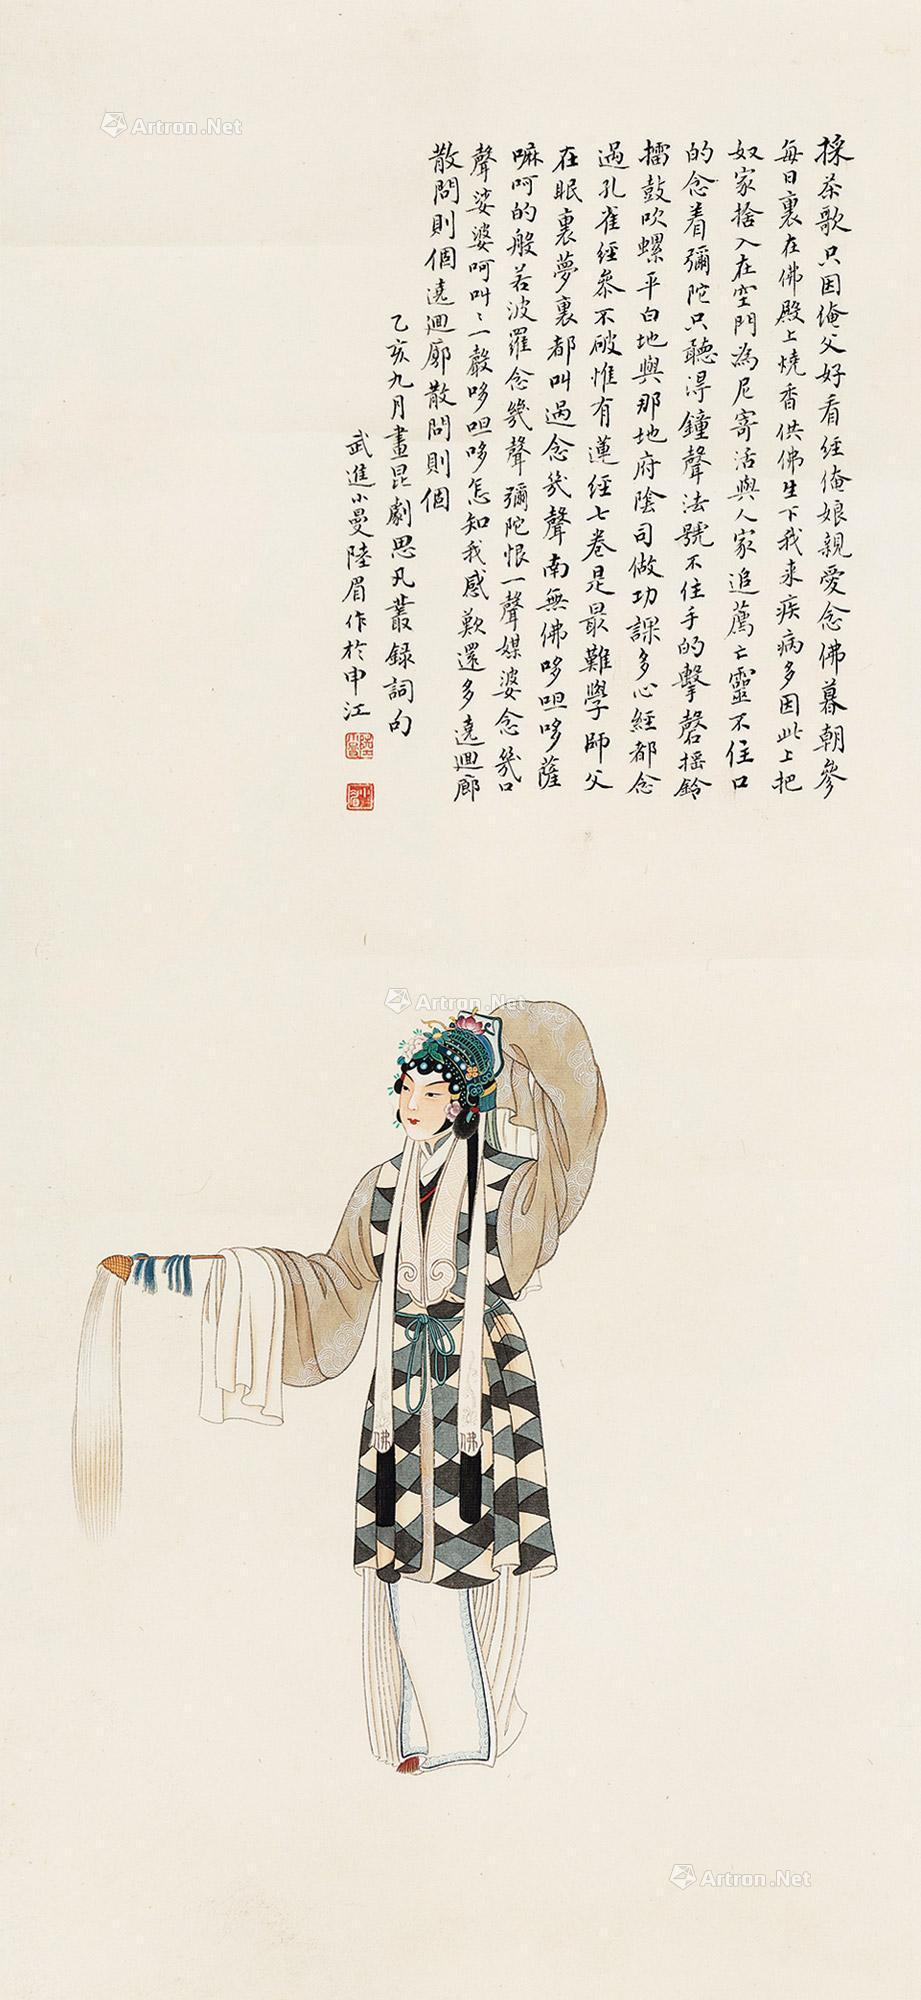 採茶歌只因俺父好看經俺娘親愛念佛暮朝參
每日裏在佛殿上燒香供佛生下我來疾病多因此上把
奴家捨入在空門為尼寄活與人家追薦亡靈不住口
的念着彌陀只聽淂鐘聲法號不住手的擊磬搖鈴
擂鼓吹螺平白地與那地府陰司做功課多心經都念
過孔雀經參不破惟有蓮經七卷是最難學師父
在眠裏夢裏都叫過念幾聲南無佛哆呾哆薩
嘛呵的般若波羅念幾聲彌陀恨一聲媒婆念幾口
聲娑婆呵叫〻一聲哆呾哆怎知我感歎還多遶迴廊
散悶則個遶迴廊散悶則個
乙亥九月畫昆劇思凡叢錄詞句
武進小曼陸眉作於申江
佛
佛
Artron.Net
Artron.Net
Artron.Net